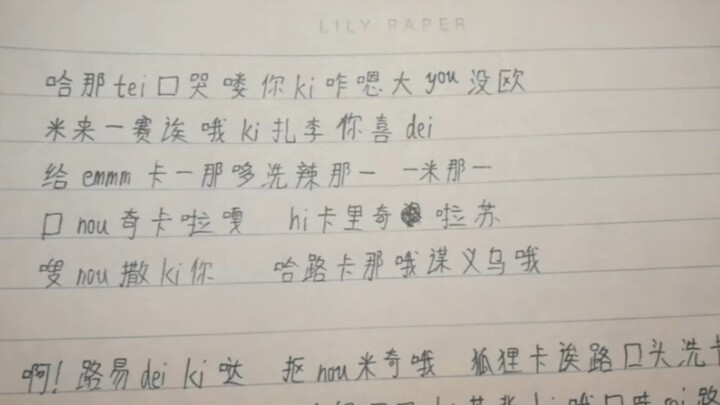 LILY PAPER
哈那tei口哭喽你ki咋嗯大you没欧
米来一赛诶哦ki扎李你喜dei
给emmm卡一那哆洗辣那一 一米那一
口nou奇卡啦嘎 hi卡里奇啦苏
嗖nou撒ki你 哈路卡那哦谋义乌哦
啊!路易dei ki哒 抠nou米奇哦 狐狸卡诶路口头洗